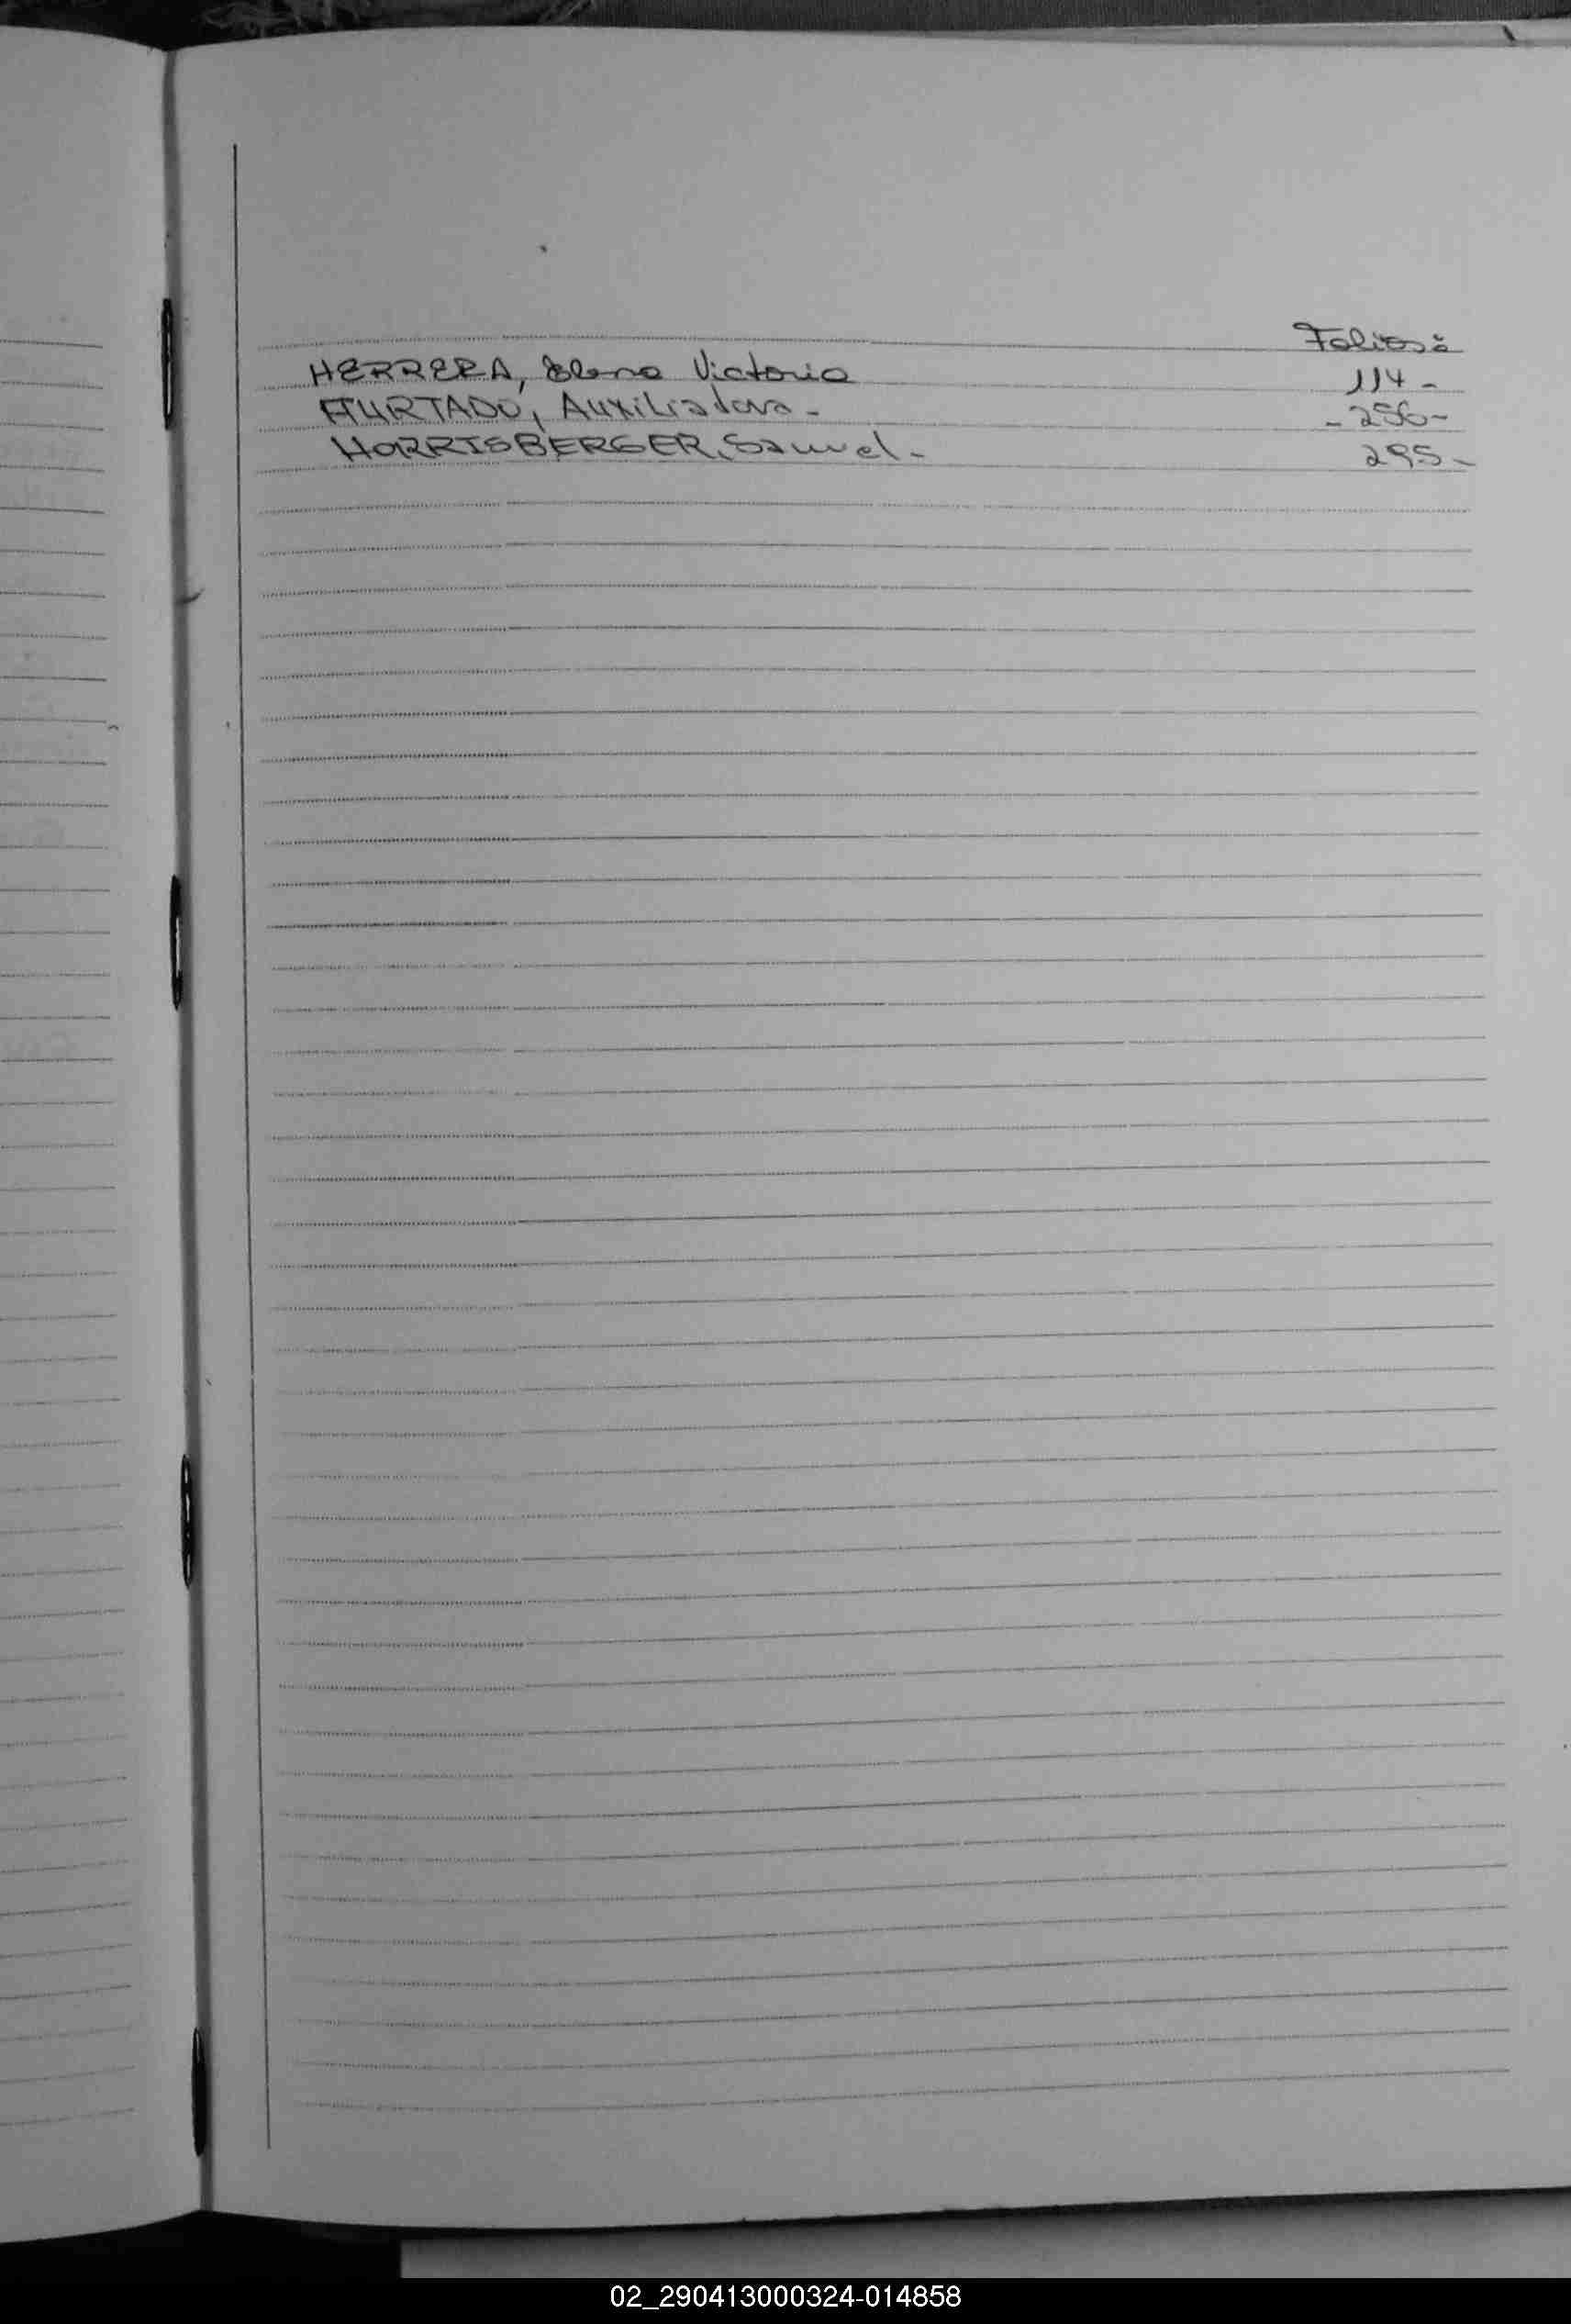 Folios:
HERRERA, Elena Victoria 114-
HURTADO, Auxiliadora- -256-
HORRISBERGER, Samuel- 295-
02_290413000324-014858